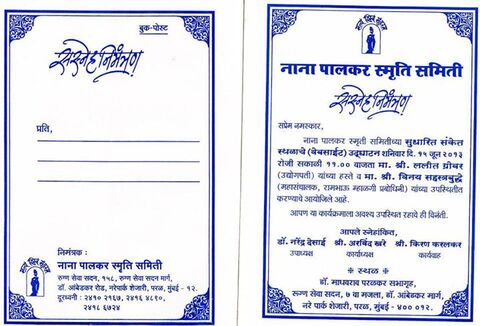 बुक-पोस्ट
सस्नेह निमंत्रण
प्रति,
निमंत्रक :
नाना पालकर स्मृति समिती
रुग्ण सेवा सदन, १५८, रुग्ण सेवा सदन मार्ग,
डॉ. आंबेडकर रोड, नरे पार्क शेजारी, परळ, मुंबई - १२.
दूरध्वनी : २४१० २१६७, २४१६ ४८९०,
२४१८ ६७२४
नाना पालकर स्मृति समिती
सस्नेह निमंत्रण
सप्रेम नमस्कार,
नाना पालकर स्मृती समितीच्या सुधारित संकेत
स्थळाचे (वेबसाईट) उद्घाटन शनिवार दि. १५ जून २०१३
रोजी सकाळी ११.०० वाजता मा. श्री. ललीत ग्रोवर
(उद्योगपती) यांच्या हस्ते व मा. श्री. विनय सहस्त्रबुद्धे
(महासंचालक, रामभाऊ म्हाळगी प्रबोधिनी) यांच्या उपस्थितीत
करण्याचे आयोजिले आहे.
आपण या कार्यक्रमाला अवश्य उपस्थित रहावे ही विनंती.
आपले स्नेहांकित,
डॉ. नरेंद्र देसाई श्री. अरविंद खरे श्री. किरण करलकर
उपाध्यक्ष कार्याध्यक्ष कार्यवाह
❋ स्थळ ❋
डॉ. माधवराव परळकर सभागृह,
रूग्ण सेवा सदन, ७ वा मजला, डॉ. आंबेडकर मार्ग,
नरे पार्क शेजारी, परळ, मुंबई - ४०० ०१२.